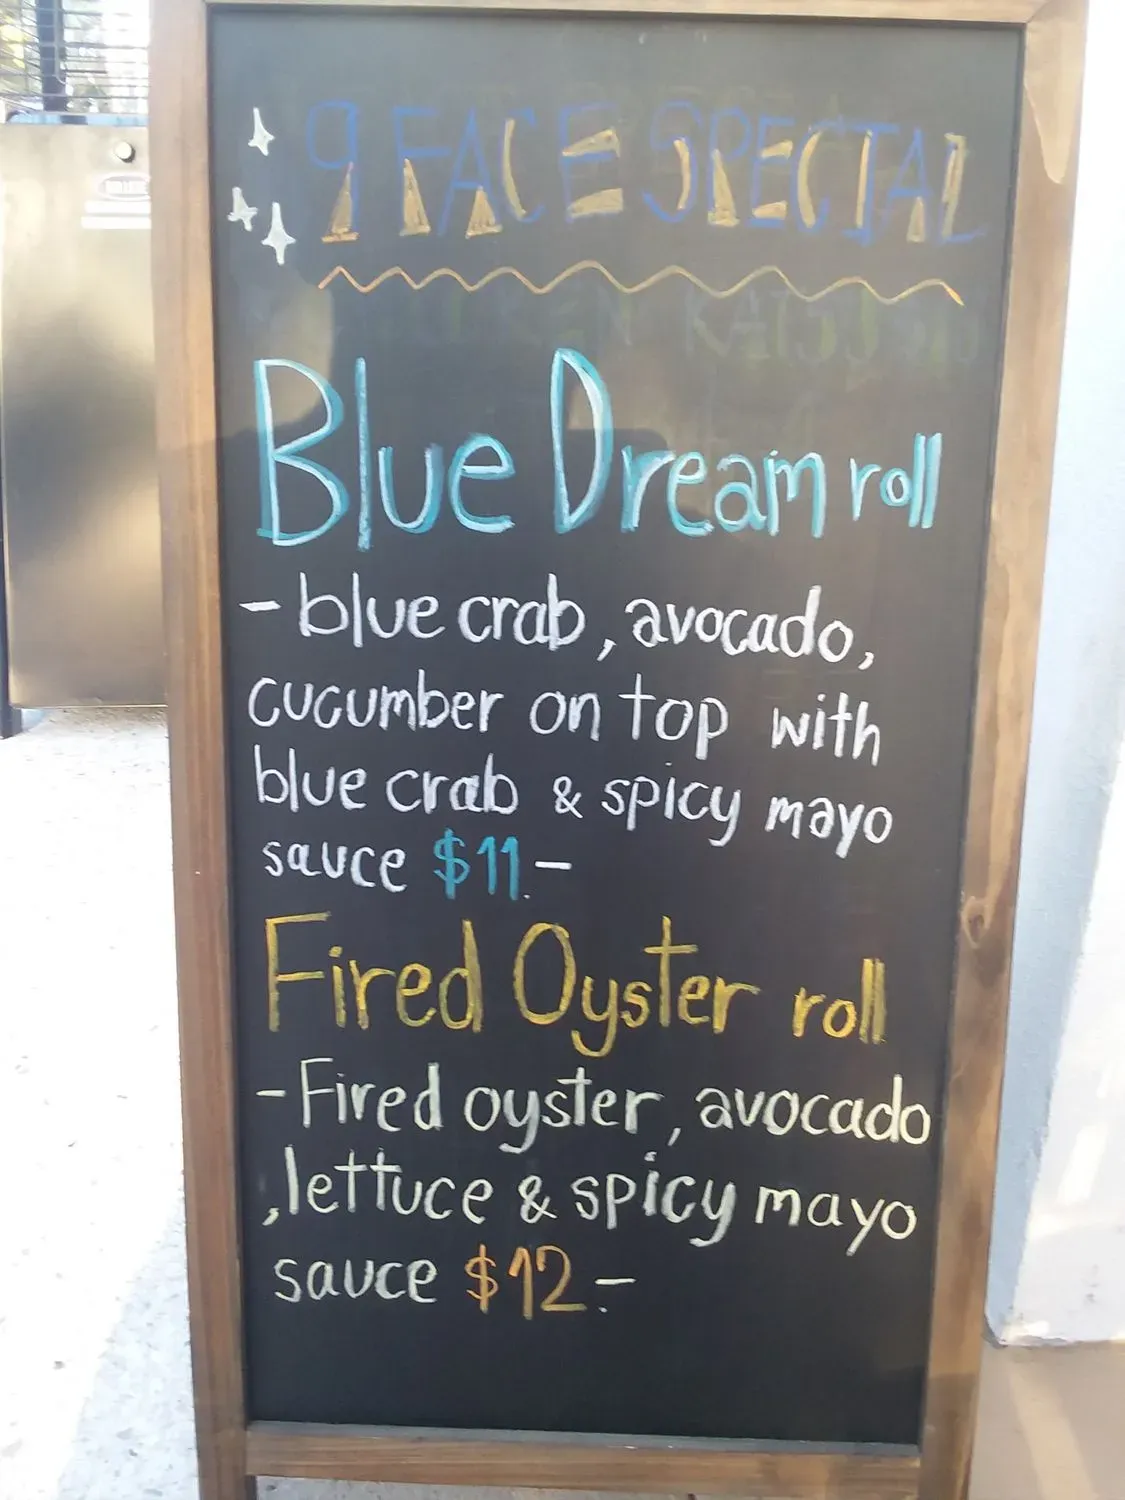 9 FACE SPECIAL
Blue Dream roll
- blue crab, avocado,
cucumber on top with
blue crab & spicy mayo
sauce $11.-
Fired Oyster roll
- Fired oyster, avocado
, lettuce & spicy mayo
sauce $12.-